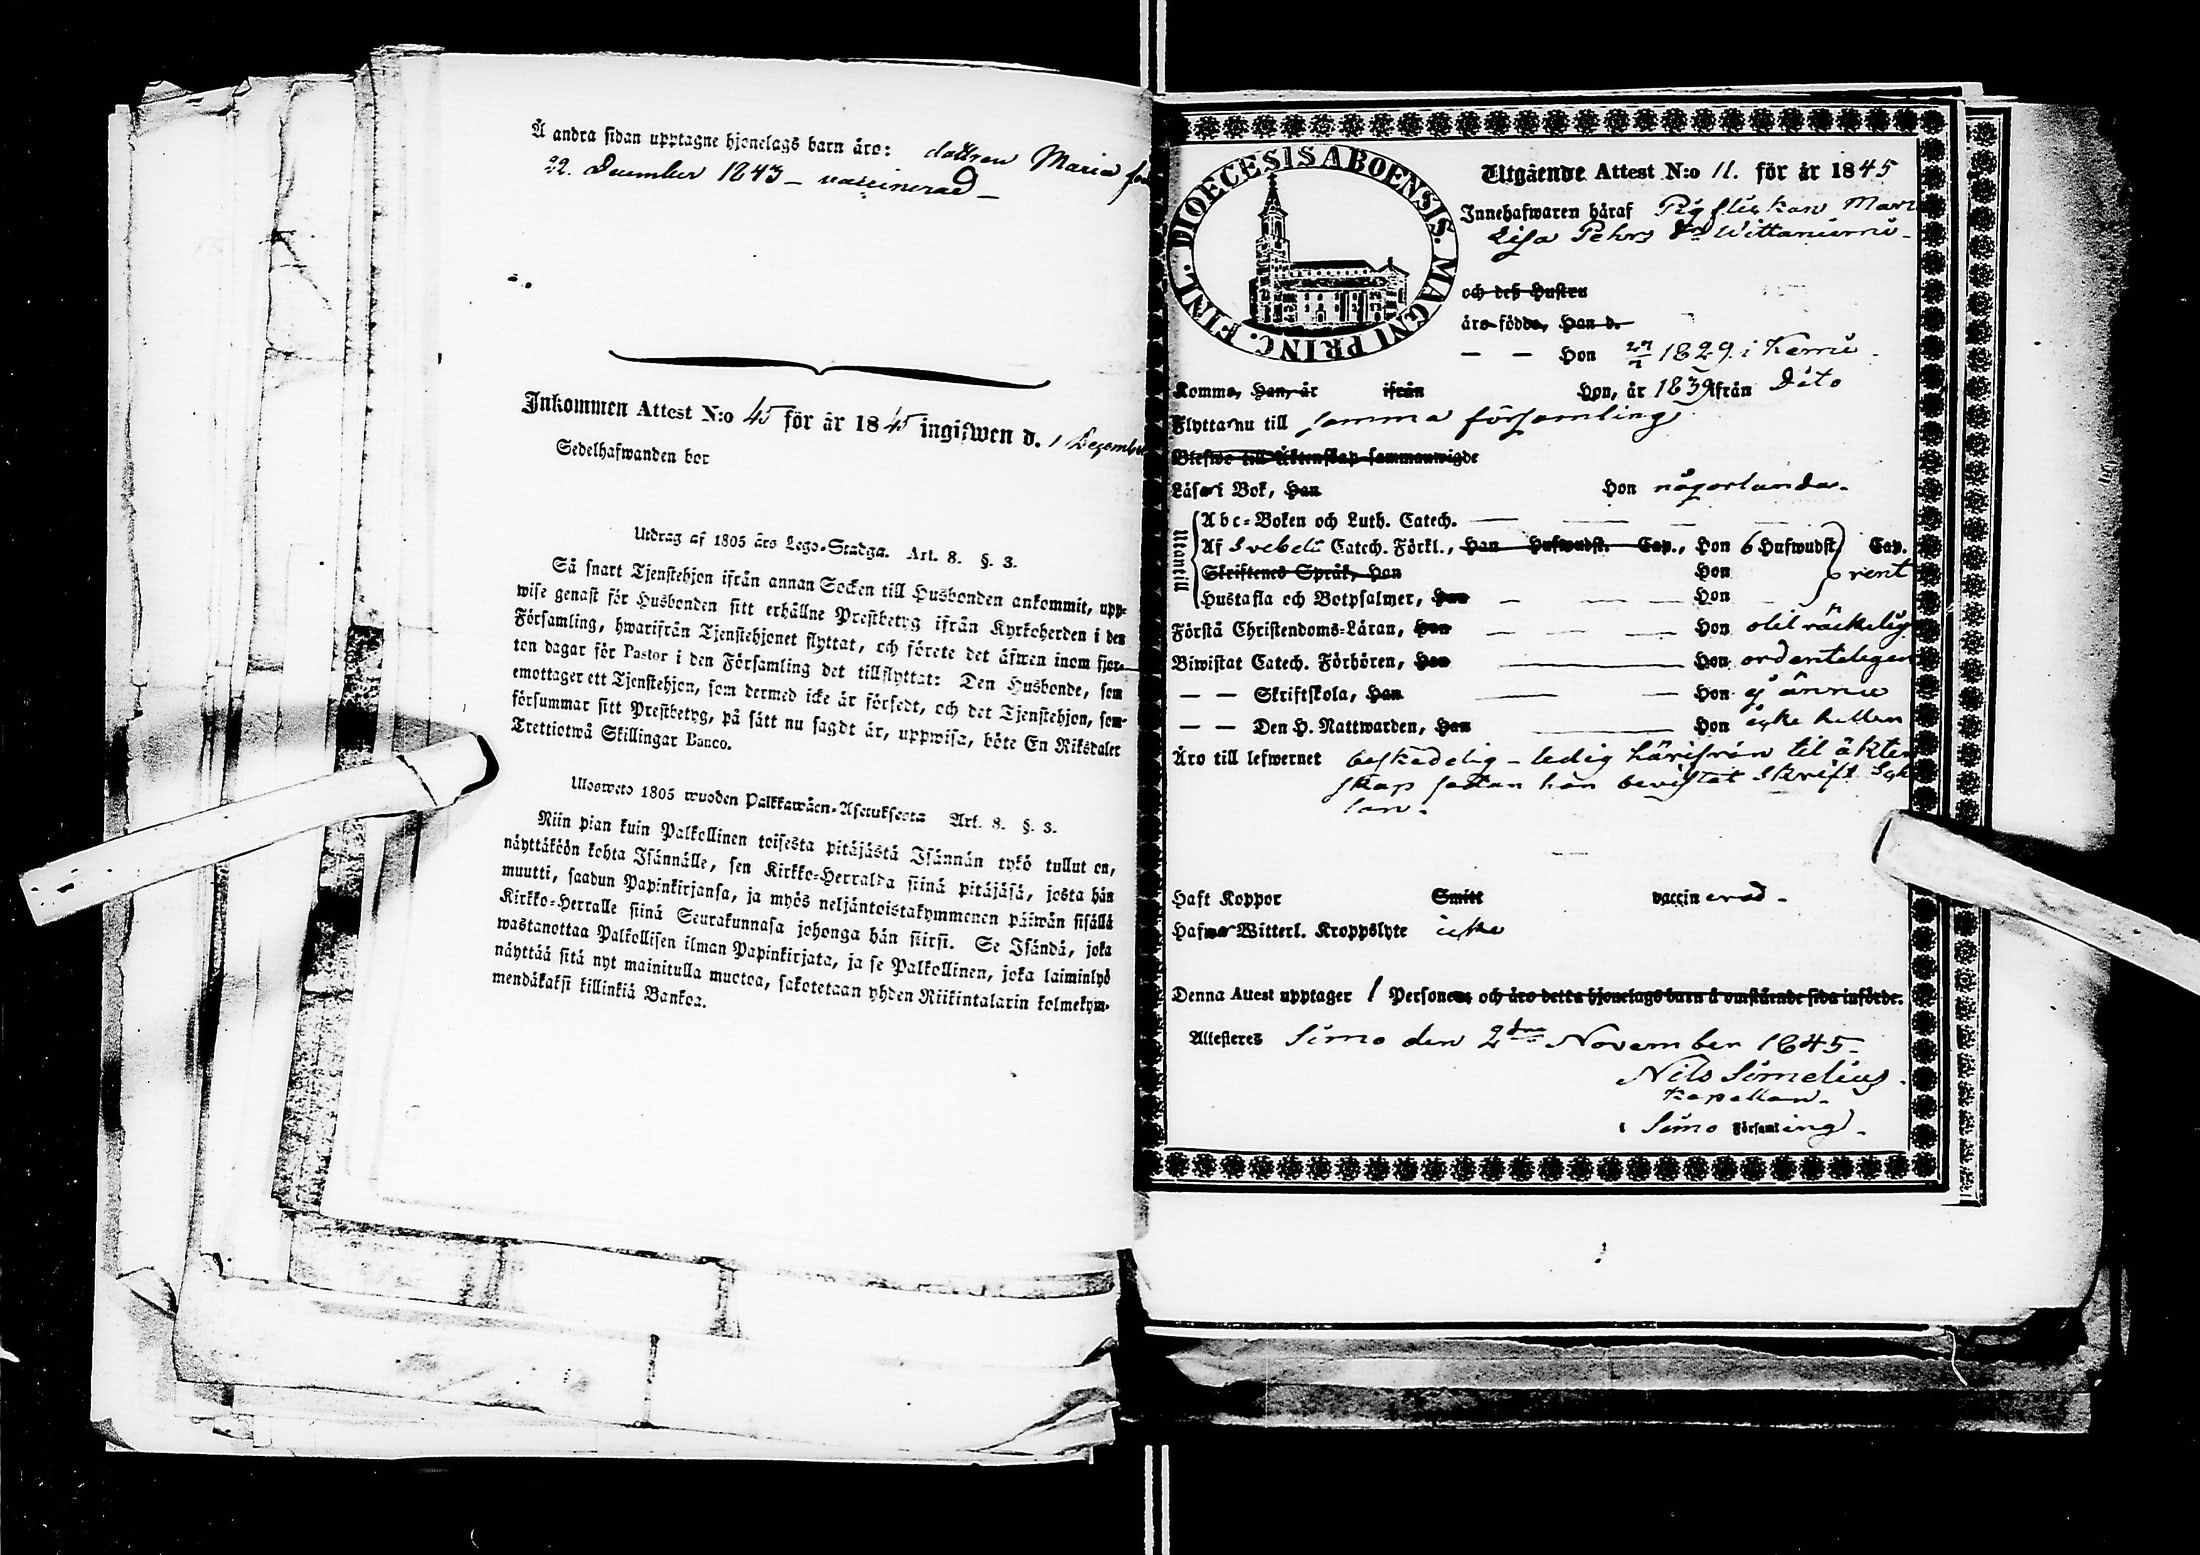 Å andra sidan upptagne hjonelags barn äro: dottren Maria född
22. December 1843 – vaccinerad –
Inkommen Attest N:o 45 för år 1845 ingifwen d. 1 Dezember
Sedelhafwanden bor
Utdrag af 1805 års Lego-Stadga. Art. 8. §. 3.
Så snart Tjenstehjon ifrån annan Socken till Husbonden ankommit, upp-
wise genast för Husbonden sitt erhållne Prestbetyg ifrån Kyrkoherden i den
Församling, hwarifrån Tjenstehjonet flyttat, och förete det äfwen inom fjor-
ton dagar för Pastor i den Församling det tillflyttat: Den Husbonde, som
emottager ett Tjenstehjon, som dermed icke är försedt, och det Tjenstehjon, som
försummar sitt Prestbetyg, på sätt nu sagdt är, uppwisa, böte En Riksdaler
Trettiotwå Skillingar Banco.
Ulosweto 1805 wuoden Palkkawäen-Asetuksesta Art. 8. §. 3.
Niin pian kuin Palkollinen toisesta pitäjästä Isännän tykö tullut on,
näyttäköön kohta Isännälle, sen Kirkko-Herralda siinä pitäjäsä, josta hän
muutti, saadun Papinkirjansa, ja myös neljäntoistakymmenen päiwän sisällä
Kirkko-Herralle siinä Seurakunnasa johonga hän siirsi. Se Isändä, joka
wastanottaa Palkollisen ilman Papinkirjata, ja se Palkollinen, joka laiminlyö
näyttää sitä nyt mainitulla muotoa, sakotetaan yhden Riikintalarin kolmekym-
mendäkaksi killinkiä Bankoa.
DIOECESIS ABOENSIS. MAGNI PRINC. FINL.
Utgående Attest N:o 11. för år 1845
Innehafwaren häraf Pig flickan Mari
Lisa Pehrs dr Wittaniemi
och deß Hustru
äro födde, Han d.
— — Hon 1829 i Kemi
Komme, Han, år ifrån Hon, år 1839 ifrån Dito
Flytta nu till samma församling
Blefwo till Äktenskap sammanwigde
Läsa i Bok, Han Hon någorlunda.
Utantill
Abc-Boken och Luth. Catech.
Af Svebeli Catech. Förkl., Han Hufwudst. Cap., Hon 6 Hufwudst. Cap.
Skriftenes Språk, Han Hon rent
Hustafla och Botpsalmer, Han Hon
Förstå Christendoms-Läran, Han Hon otilräckelig
Biwistat Catech. Förhören, Han Hon ordenteligen
— — Skriftskola, Han Hon ej ännu
— — Den H. Nattwarden, Han Hon icke heller
Äro till lefwernet beskedelig – ledig härifrån til äkten
skap sedan hon bevistat Skrift Sko
lan.
Haft Koppor Smitt vaccinerad –
Hafwa Witterl. Kroppslyte icke
Denna Attest upptager 1 Personer och äro detta hjonelags barn å omstående sida införde.
Attesteras Simo den 2dra November 1845
Nils Simelius
Kapellan
i Simo Församling